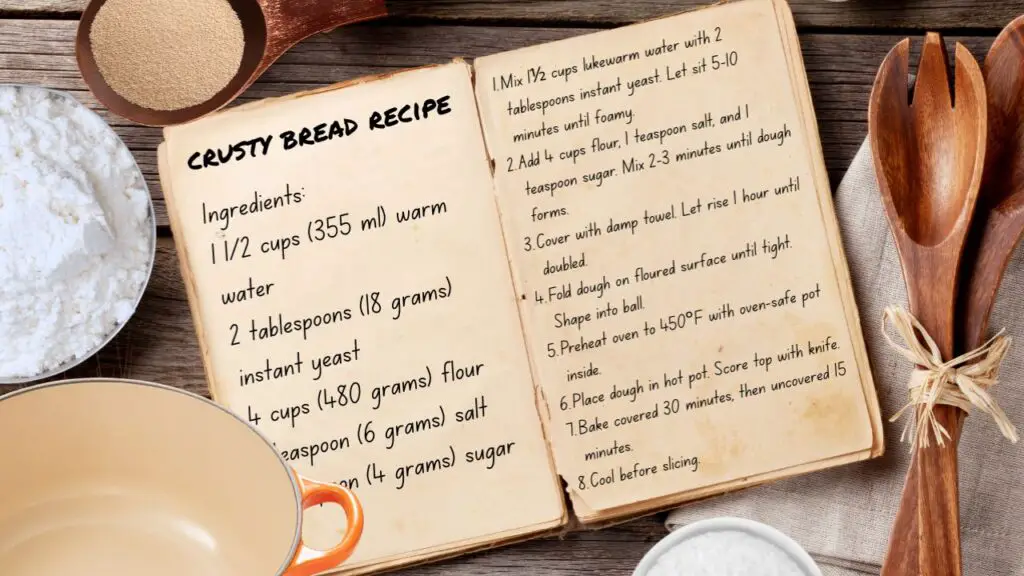 CRUSTY BREAD RECIPE
Ingredients:
1 1/2 cups (355 ml) warm
water
2 tablespoons (18 grams)
instant yeast
4 cups (480 grams) flour
easpoon (6 grams) salt
on (4 grams) sugar
1.Mix 1½ cups lukewarm water with 2
tablespoons instant yeast. Let sit 5-10
minutes until foamy.
2.Add 4 cups flour, 1 teaspoon salt, and 1
teaspoon sugar. Mix 2-3 minutes until dough
forms.
3.Cover with damp towel. Let rise 1 hour until
doubled.
4.Fold dough on floured surface until tight.
Shape into ball.
5.Preheat oven to 450°F with oven-safe pot
inside.
6.Place dough in hot pot. Score top with knife.
7.Bake covered 30 minutes, then uncovered 15
minutes.
8.Cool before slicing.